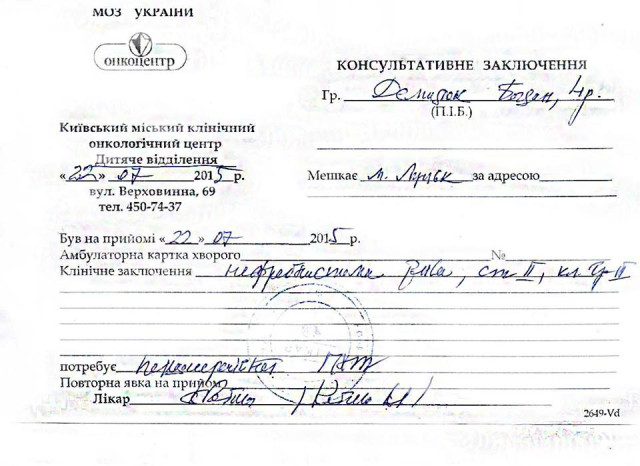 МОЗ УКРАЇНИ
ОНКОЦЕНТР
КОНСУЛЬТАТИВНЕ ЗАКЛЮЧЕННЯ
Гр. Демидюк Богдан, 4р.
(П.І.Б.)
Київський міський клінічний
онкологічний центр
Дитяче відділення
«22» 07 2015 р.
Мешкає м. Луцьк за адресою
вул. Верховинна, 69
тел. 450-74-37
Був на прийомі «22» 07 2015 р.
Амбулаторна картка хворого №
Клінічне заключення нефробластома, ст II, кл. гр II
потребує ПХТ
Повторна явка на прийом
Лікар
2649-Vd